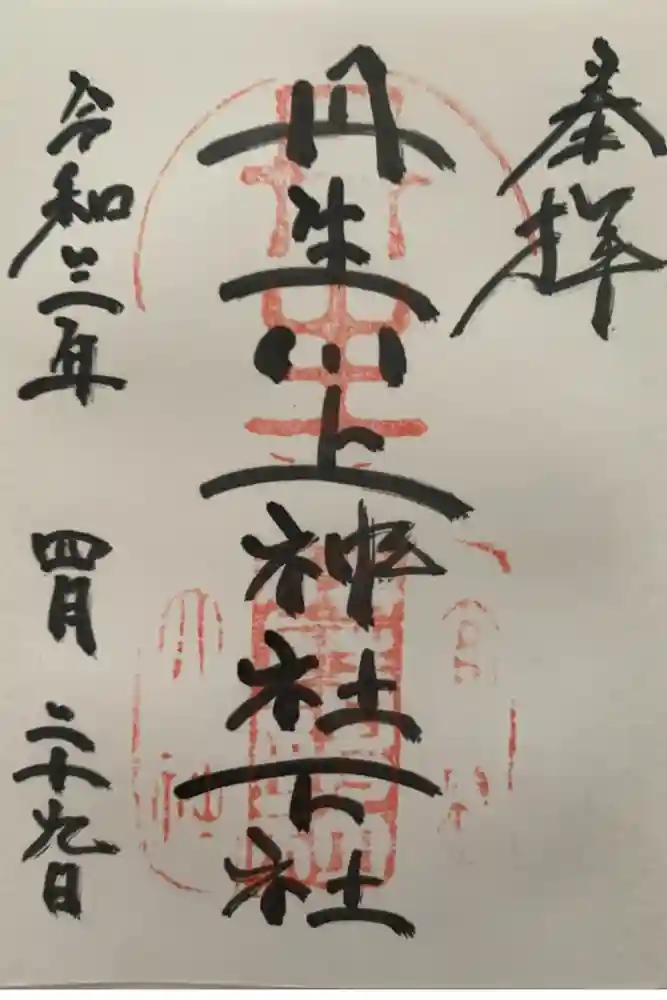 奉拝
丹生川上神社下社
令和三年 四月 二十九日